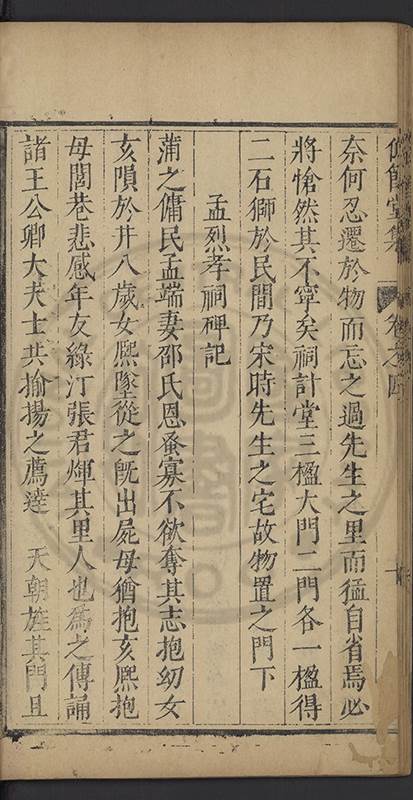 堂集 卷之四
奈何忍遷於物而忘之過先生之里而猛自省焉必
將愴然其不寧矣祠計堂三楹大門二門各一楹得
二石獅於民間乃宋時先生之宅故物置之門下
孟烈孝祠碑記
蒲之傭民孟端妻邵氏恩蚤寡不欲奪其志抱幼女
亥隕於井八歲女熈墜從之旣出屍母猶抱亥熈抱
母閭巷悲感年友綠汀張君煇其里人也爲之傳誦
諸王公卿大夫士共揄揚之薦達 天朝旌其門且